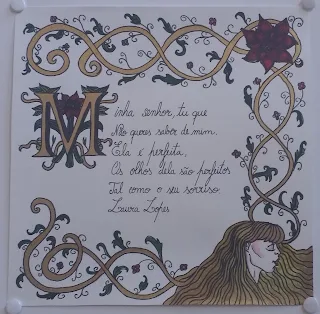 Minha senhor, tu que
Não queres saber de mim,
Ela é perfeita,
Os olhos dela são perfeitos
Tal como o seu sorriso.
Laura Lopes